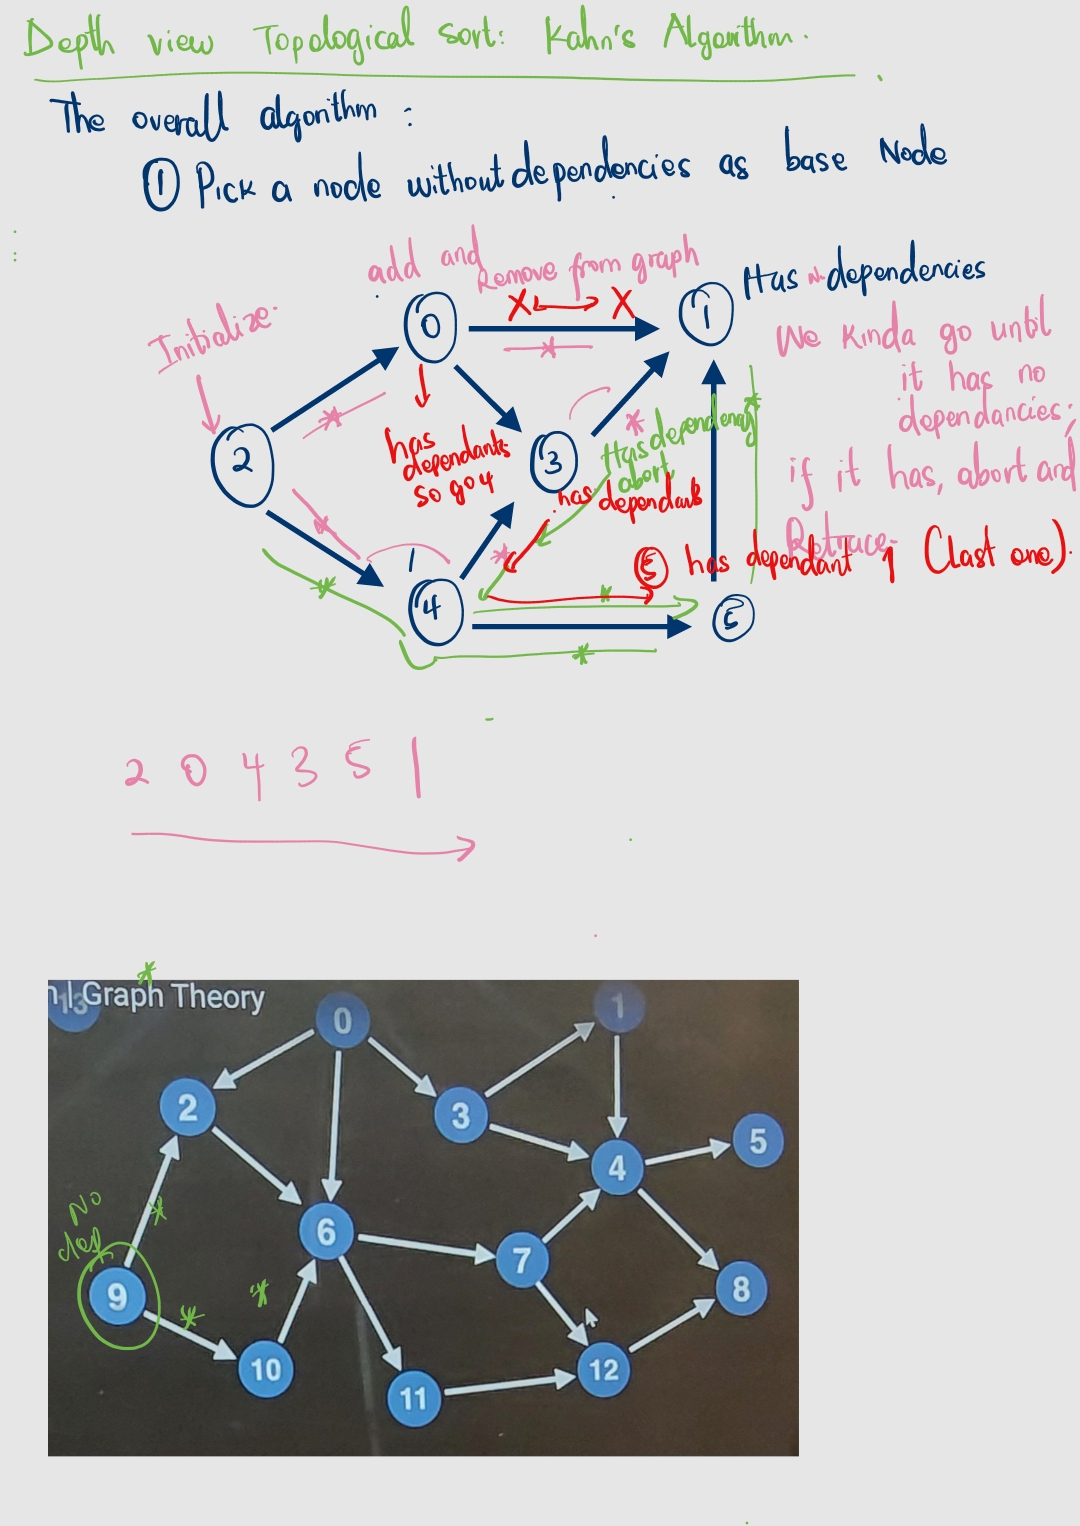 Depth view Topological sort: Kahn's Algorithm.
The overall algorithm :
① Pick a node without dependencies as base Node
add and
Remove from graph
Has no dependencies
Initialize.
X X
0
1
We Kinda go until
it has no
dependancies;
if it has, abort and
Retrace.
2
has
dependants
so go 4
3
Has dependency
abort
has dependant
⑤ has dependant 1 (last one).
4
5
2 0 4 3 5 1
13
n | Graph Theory
0
1
2
3
4
5
No
dep
6
7
8
9
10
11
12